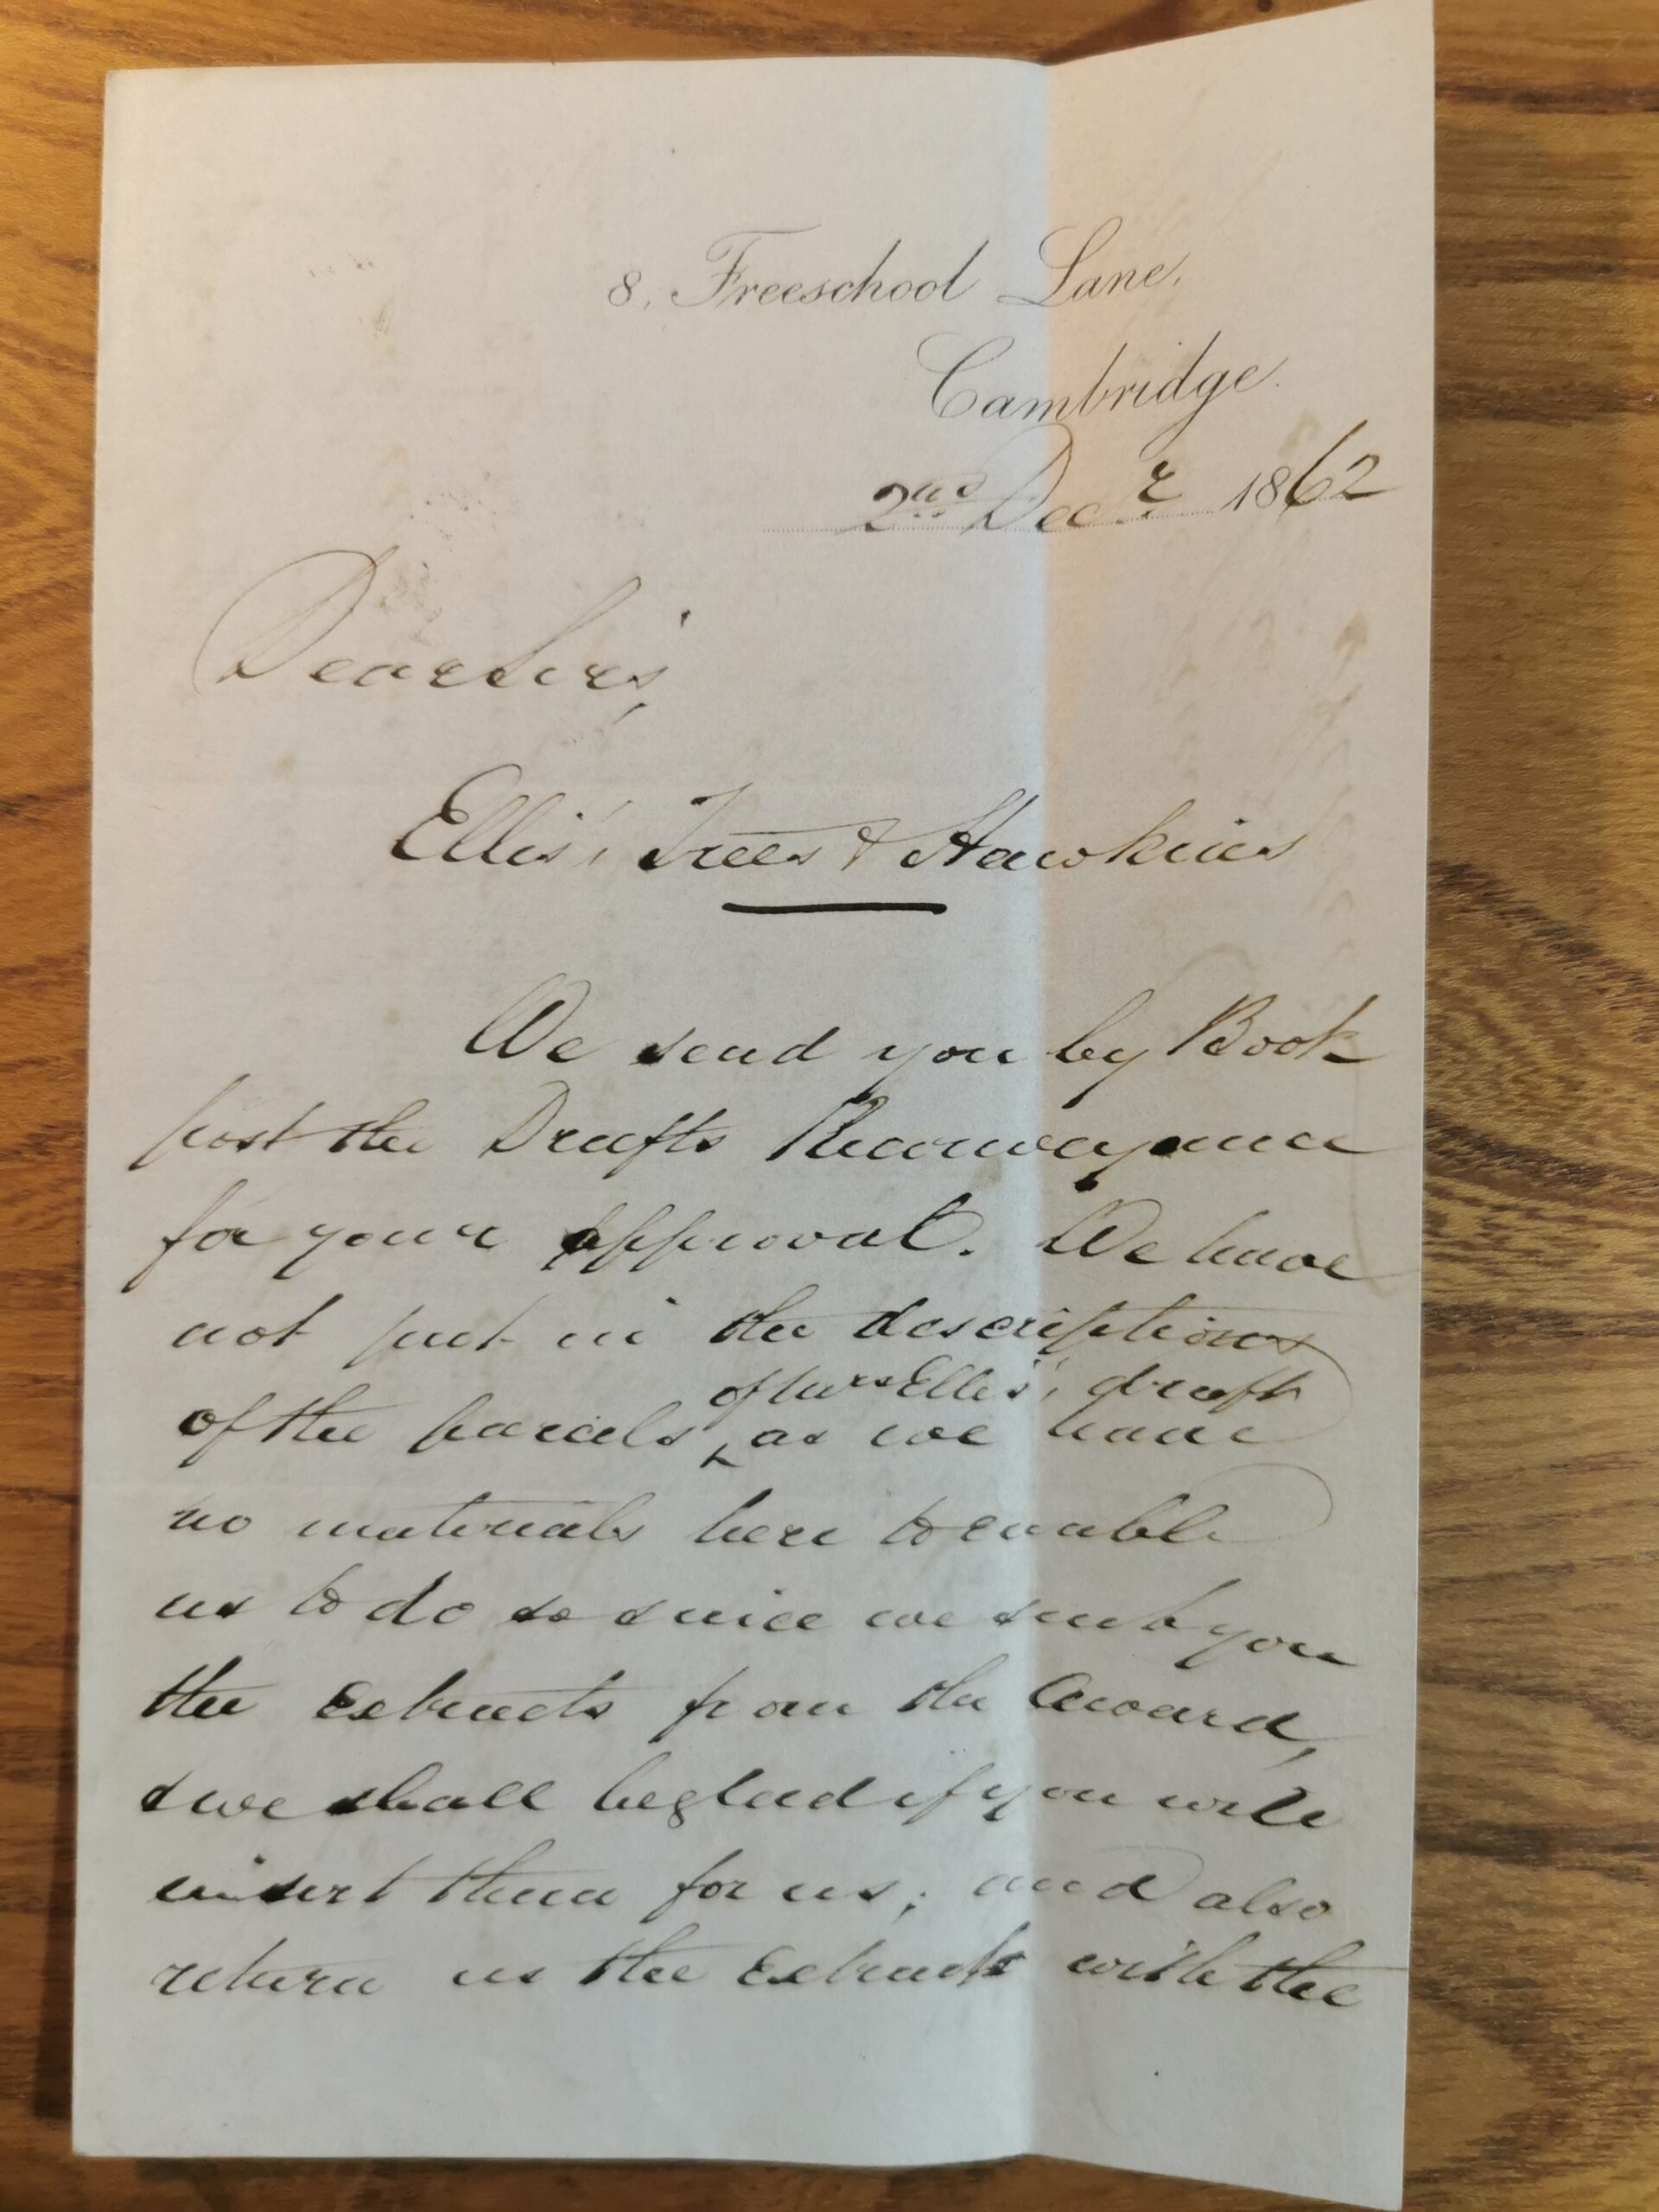 8, Freeschool Lane,
Cambridge.
2nd Decr 1862
Dear Sirs,
Ellis' Trees & Hawkins
We send you by Book
post the Drafts Reconveyance
for your approval. We have
not put in the descriptions
of Mrs Ellis', draft
of the parcels, as we have
no materials here to enable
us to do so since we sent you
the Extracts from the Award,
& we shall be glad if you will
insert them for us; and also
return us the Extracts with the